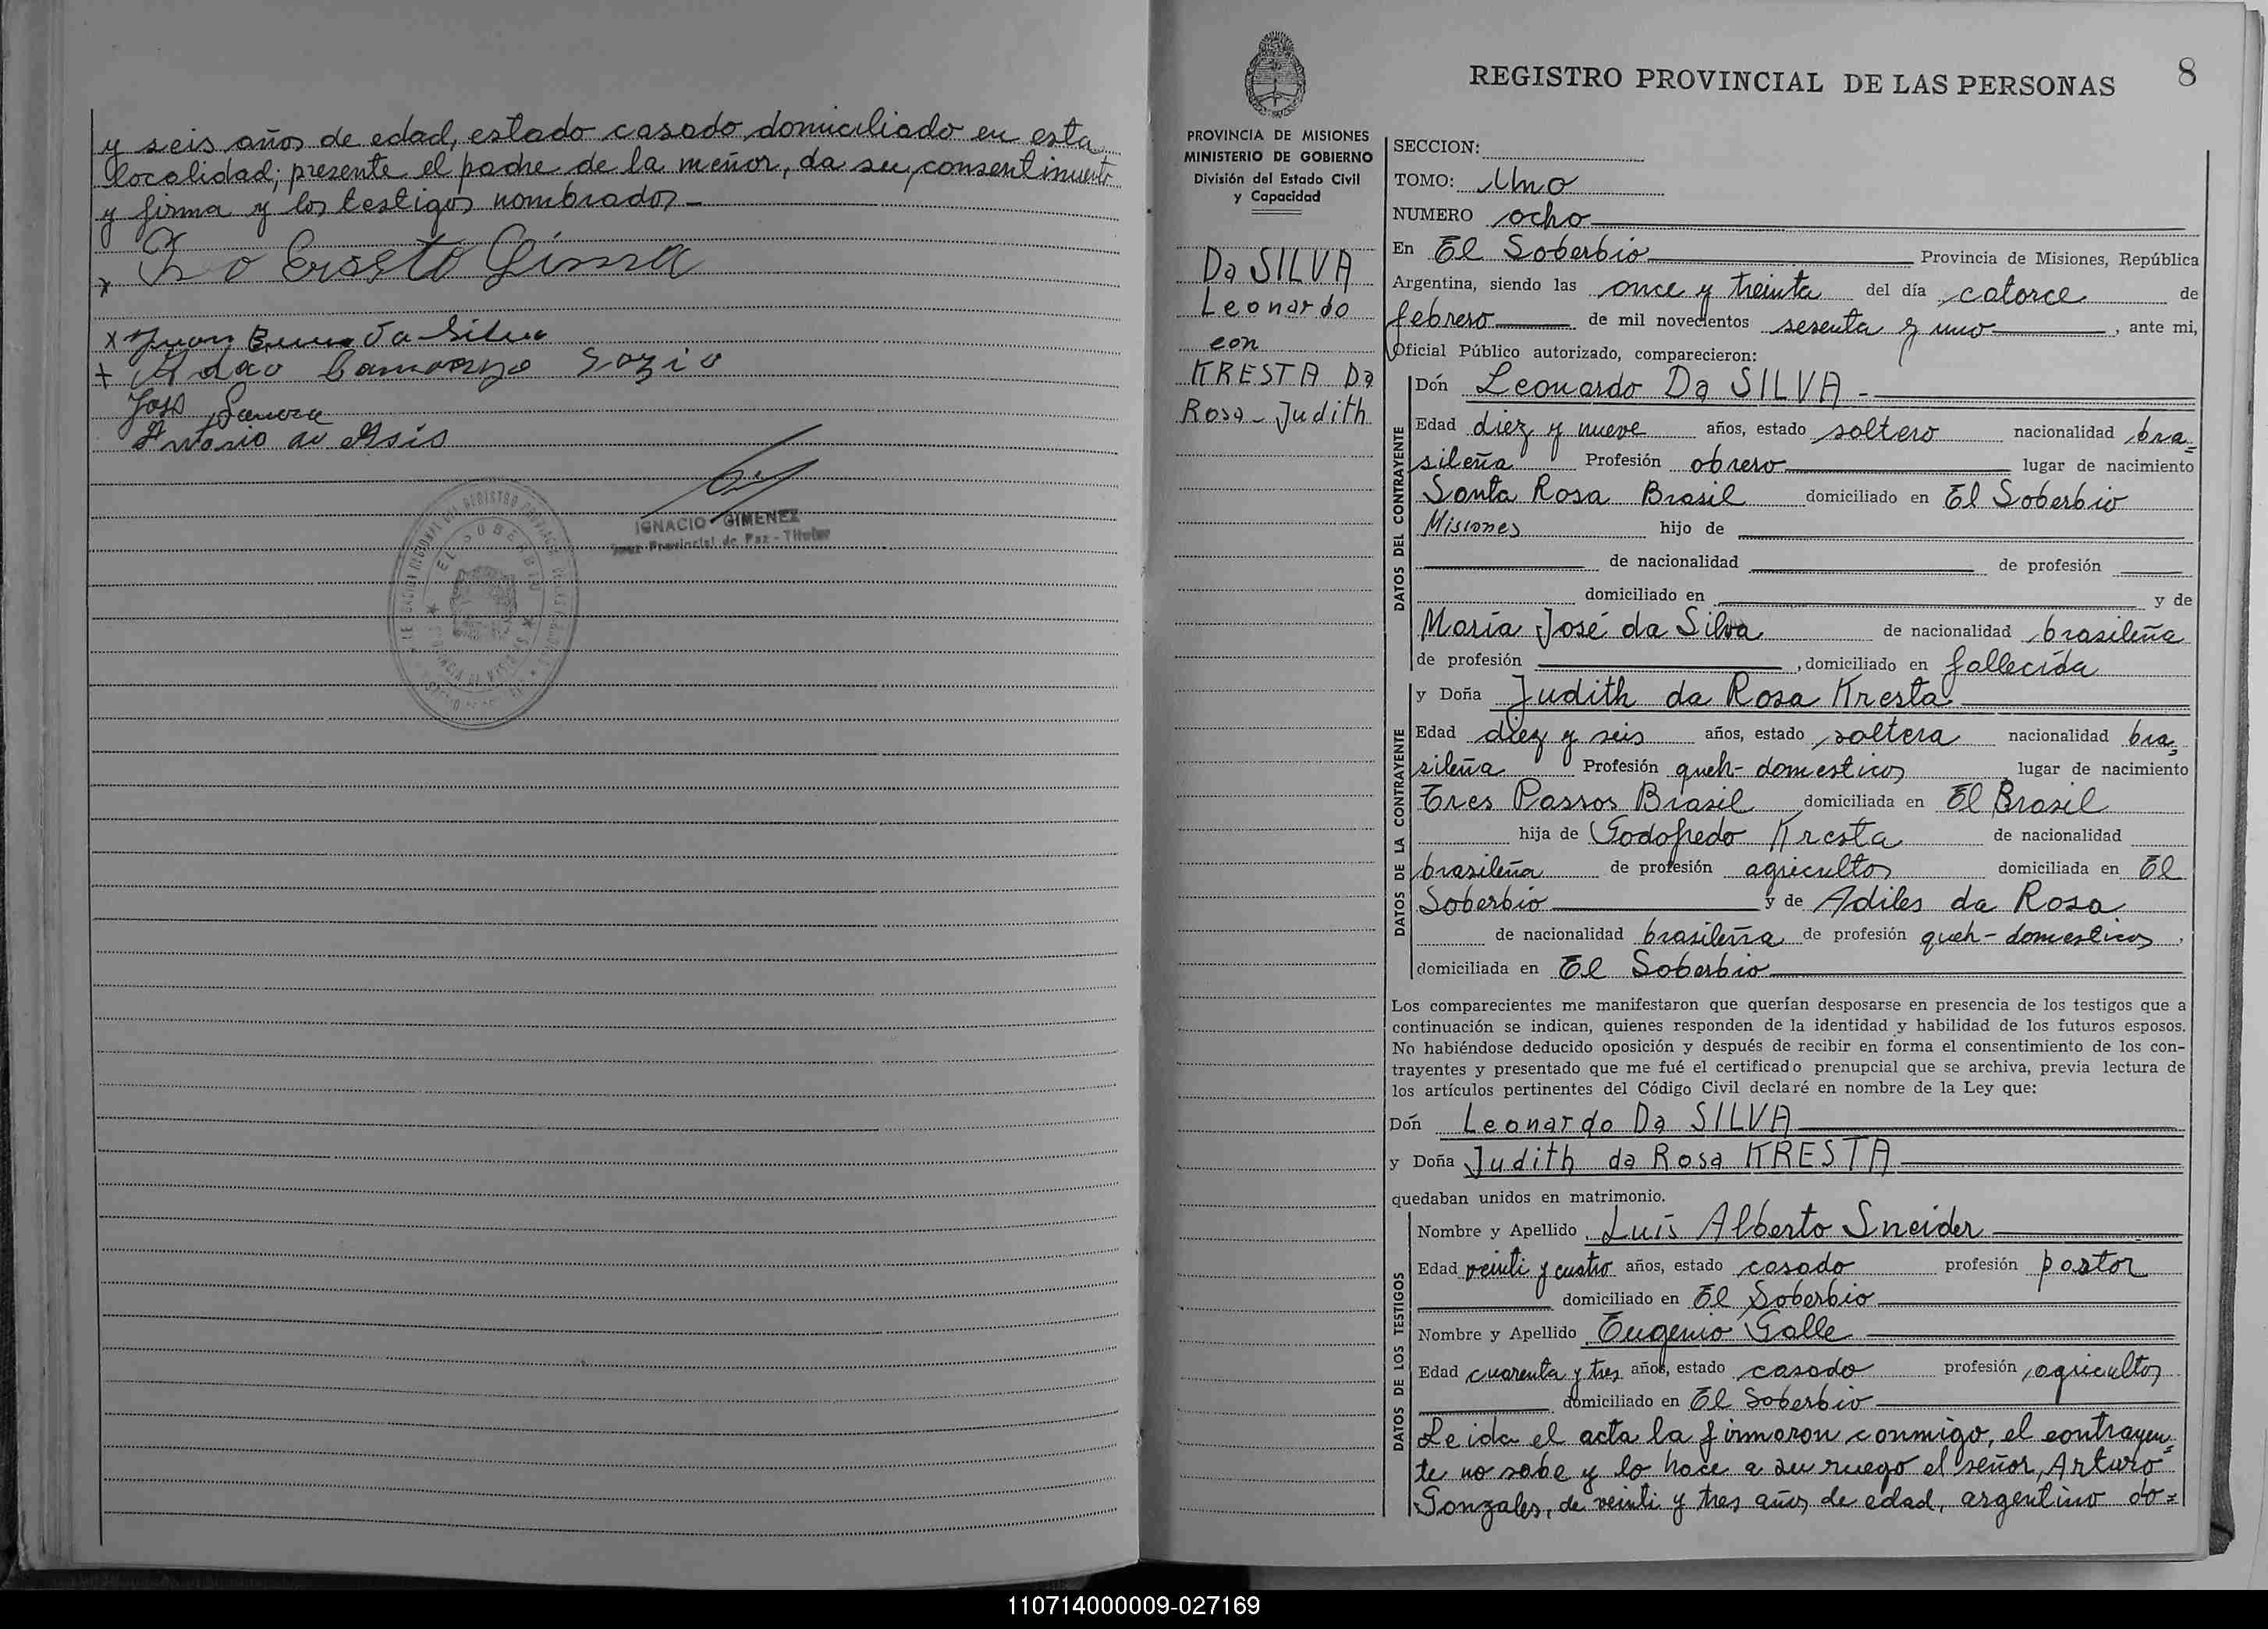 y seis años de edad, estado casado domiciliado en esta
localidad; presente el padre de la menor, da su consentimiento
y firma y los testigos nombrados -
x
x Juan Da Silva
+ Adao
José
de Asis
IGNACIO GIMENEZ
Juez Provincial de Paz - Titular
EL SOBERBIO
8
REGISTRO PROVINCIAL DE LAS PERSONAS
PROVINCIA DE MISIONES
MINISTERIO DE GOBIERNO
División del Estado Civil
y Capacidad
Da SILVA
Leonardo
con
KRESTA Da
Rosa - Judith
SECCION:
TOMO: Uno
NUMERO ocho
En El Soberbio Provincia de Misiones, República
Argentina, siendo las once y treinta del día catorce de
febrero de mil novecientos sesenta y uno, ante mi,
Oficial Público autorizado, comparecieron:
DATOS DEL CONTRAYENTE
Dón Leonardo Da SILVA -
Edad diez y nueve años, estado soltero nacionalidad bra=
sileña Profesión obrero lugar de nacimiento
Santa Rosa Brasil domiciliado en El Soberbio
Misiones hijo de
de nacionalidad de profesión
domiciliado en y de
María José da Silva de nacionalidad brasileña
de profesión , domiciliado en fallecida
DATOS DE LA CONTRAYENTE
y Doña Judith da Rosa Kresta
Edad diez y seis años, estado soltera nacionalidad bra=
sileña Profesión queh- domesticos lugar de nacimiento
Tres Passos Brasil domiciliada en El Brasil
hija de Godofredo Kresta de nacionalidad
brasileña de profesión agricultor domiciliada en El
Soberbio y de Adiles da Rosa
de nacionalidad brasileña de profesión queh- domesticos ,
domiciliada en El Soberbio
Los comparecientes me manifestaron que querían desposarse en presencia de los testigos que a
continuación se indican, quienes responden de la identidad y habilidad de los futuros esposos.
No habiéndose deducido oposición y después de recibir en forma el consentimiento de los con-
trayentes y presentado que me fué el certificado prenupcial que se archiva, previa lectura de
los artículos pertinentes del Código Civil declaré en nombre de la Ley que:
Dón Leonardo Da SILVA
y Doña Judith da Rosa KRESTA
quedaban unidos en matrimonio.
DATOS DE LOS TESTIGOS
Nombre y Apellido Luis Alberto Sneider
Edad veinti y cuatro años, estado casado profesión pastor
domiciliado en El Soberbio
Nombre y Apellido Eugenio Galle
Edad cuarenta y tres años, estado casado profesión agricultor
domiciliado en El Soberbio
Leida el acta la firmaron conmigo, el contrayen=
te no sabe y lo hace a su ruego el señor, Arturo
Gonzales, de veinti y tres años de edad, argentino do=
110714000009-027169